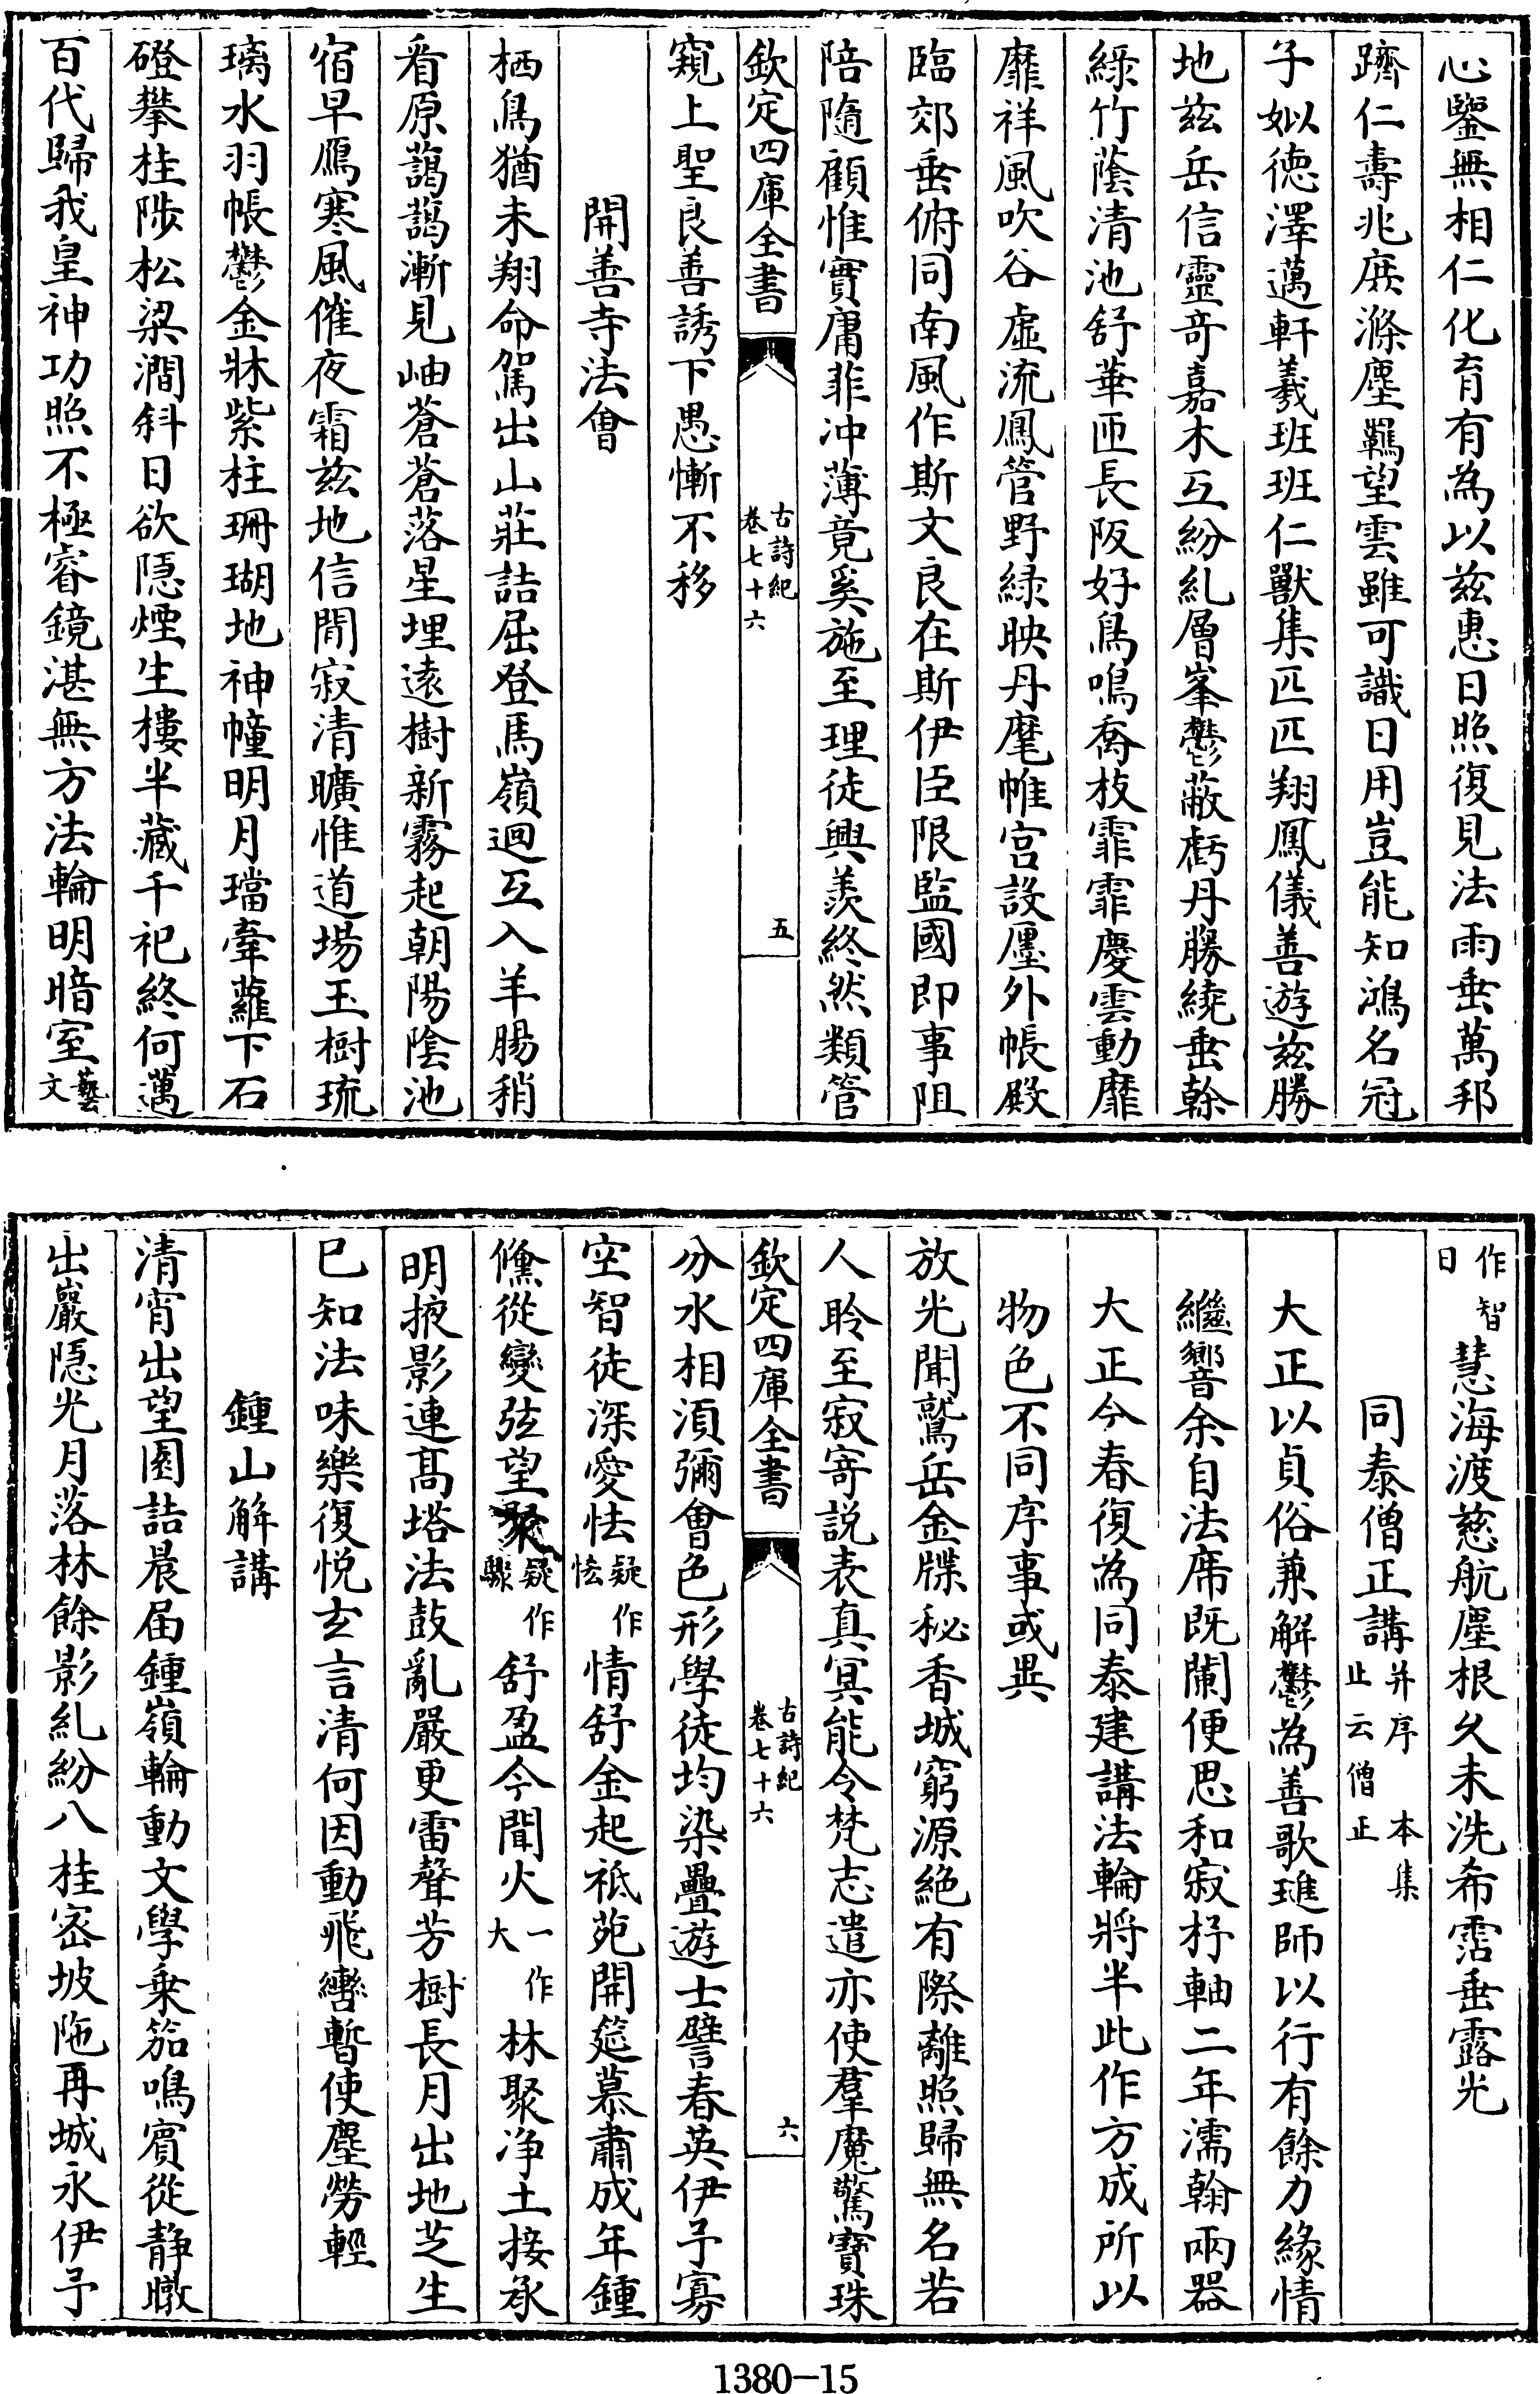 心鑒無相仁化育有為以茲惠日照復見法雨垂萬邦
躋仁壽兆庶滌塵羈望雲雖可識日用豈能知鴻名冠
子姒徳澤邁軒羲班班仁獸集匹匹翔鳳儀善遊茲勝
地茲岳信靈奇嘉木互紛糺層峯鬱蔽虧丹勝繞垂榦
緑竹蔭清池舒華匝長阪好鳥鳴喬枝霏霏慶雲動靡
靡祥風吹谷虛流鳳管野緑映丹麾帷宮設廛外帳殿
臨郊垂俯同南風作斯文良在斯伊臣限監國即事阻
陪隨顧惟實庸菲沖薄竟奚施至理徒興羨終然類管
欽定四庫全書
古詩紀
卷七十六
五
窺上聖良善誘下愚慚不移
開善寺法會
栖鳥猶未翔命駕出山莊詰屈登馬嶺迴互入羊腸稍
看原藹藹漸見岫蒼蒼落星埋遠樹新霧起朝陽陰池
宿早鴈寒風催夜霜茲地信閒寂清曠惟道場玉樹琉
璃水羽帳鬱金牀紫柱珊瑚地神幢明月璫牽蘿下石
磴攀桂陟松梁澗斜日欲隠煙生樓半藏千祀終何邁
百代歸我皇神功照不極睿鏡湛無方法輪明暗室藝文
作智日慧海渡慈航塵根久未洗希霑垂露光
同泰僧正講并序 本集止云僧正
大正以貞俗兼解鬱為善歌璡師以行有餘力緣情
繼響余自法席既闌便思和寂杼軸二年濡翰兩器
大正今春復為同泰建講法輪將半此作方成所以
物色不同序事或異
放光聞鷲岳金牒秘香城窮源絕有際離照歸無名若
人聆至寂寄説表真冥能令梵志遣亦使羣魔驚寳珠
欽定四庫全書
古詩紀
卷七十六
六
分水相湏彌會色形學徒均染疊遊士譬春英伊予寡
空智徒深愛怯疑作㤼情舒金起祗苑開筵慕肅成年鍾
儵從變弦望聚疑作驟舒盈今聞火一作大林聚浄土接承
明掖影連髙塔法鼓亂嚴更雷聲芳樹長月出地芝生
巳知法味樂復悦𤣥言清何因動飛轡暫使塵勞輕
鍾山解講
清宵出望園詰晨届鍾嶺輪動文學乗笳鳴賓從静暾
出巖隠光月落林餘影糺紛八桂宻坡陁再城永伊予
1380－15